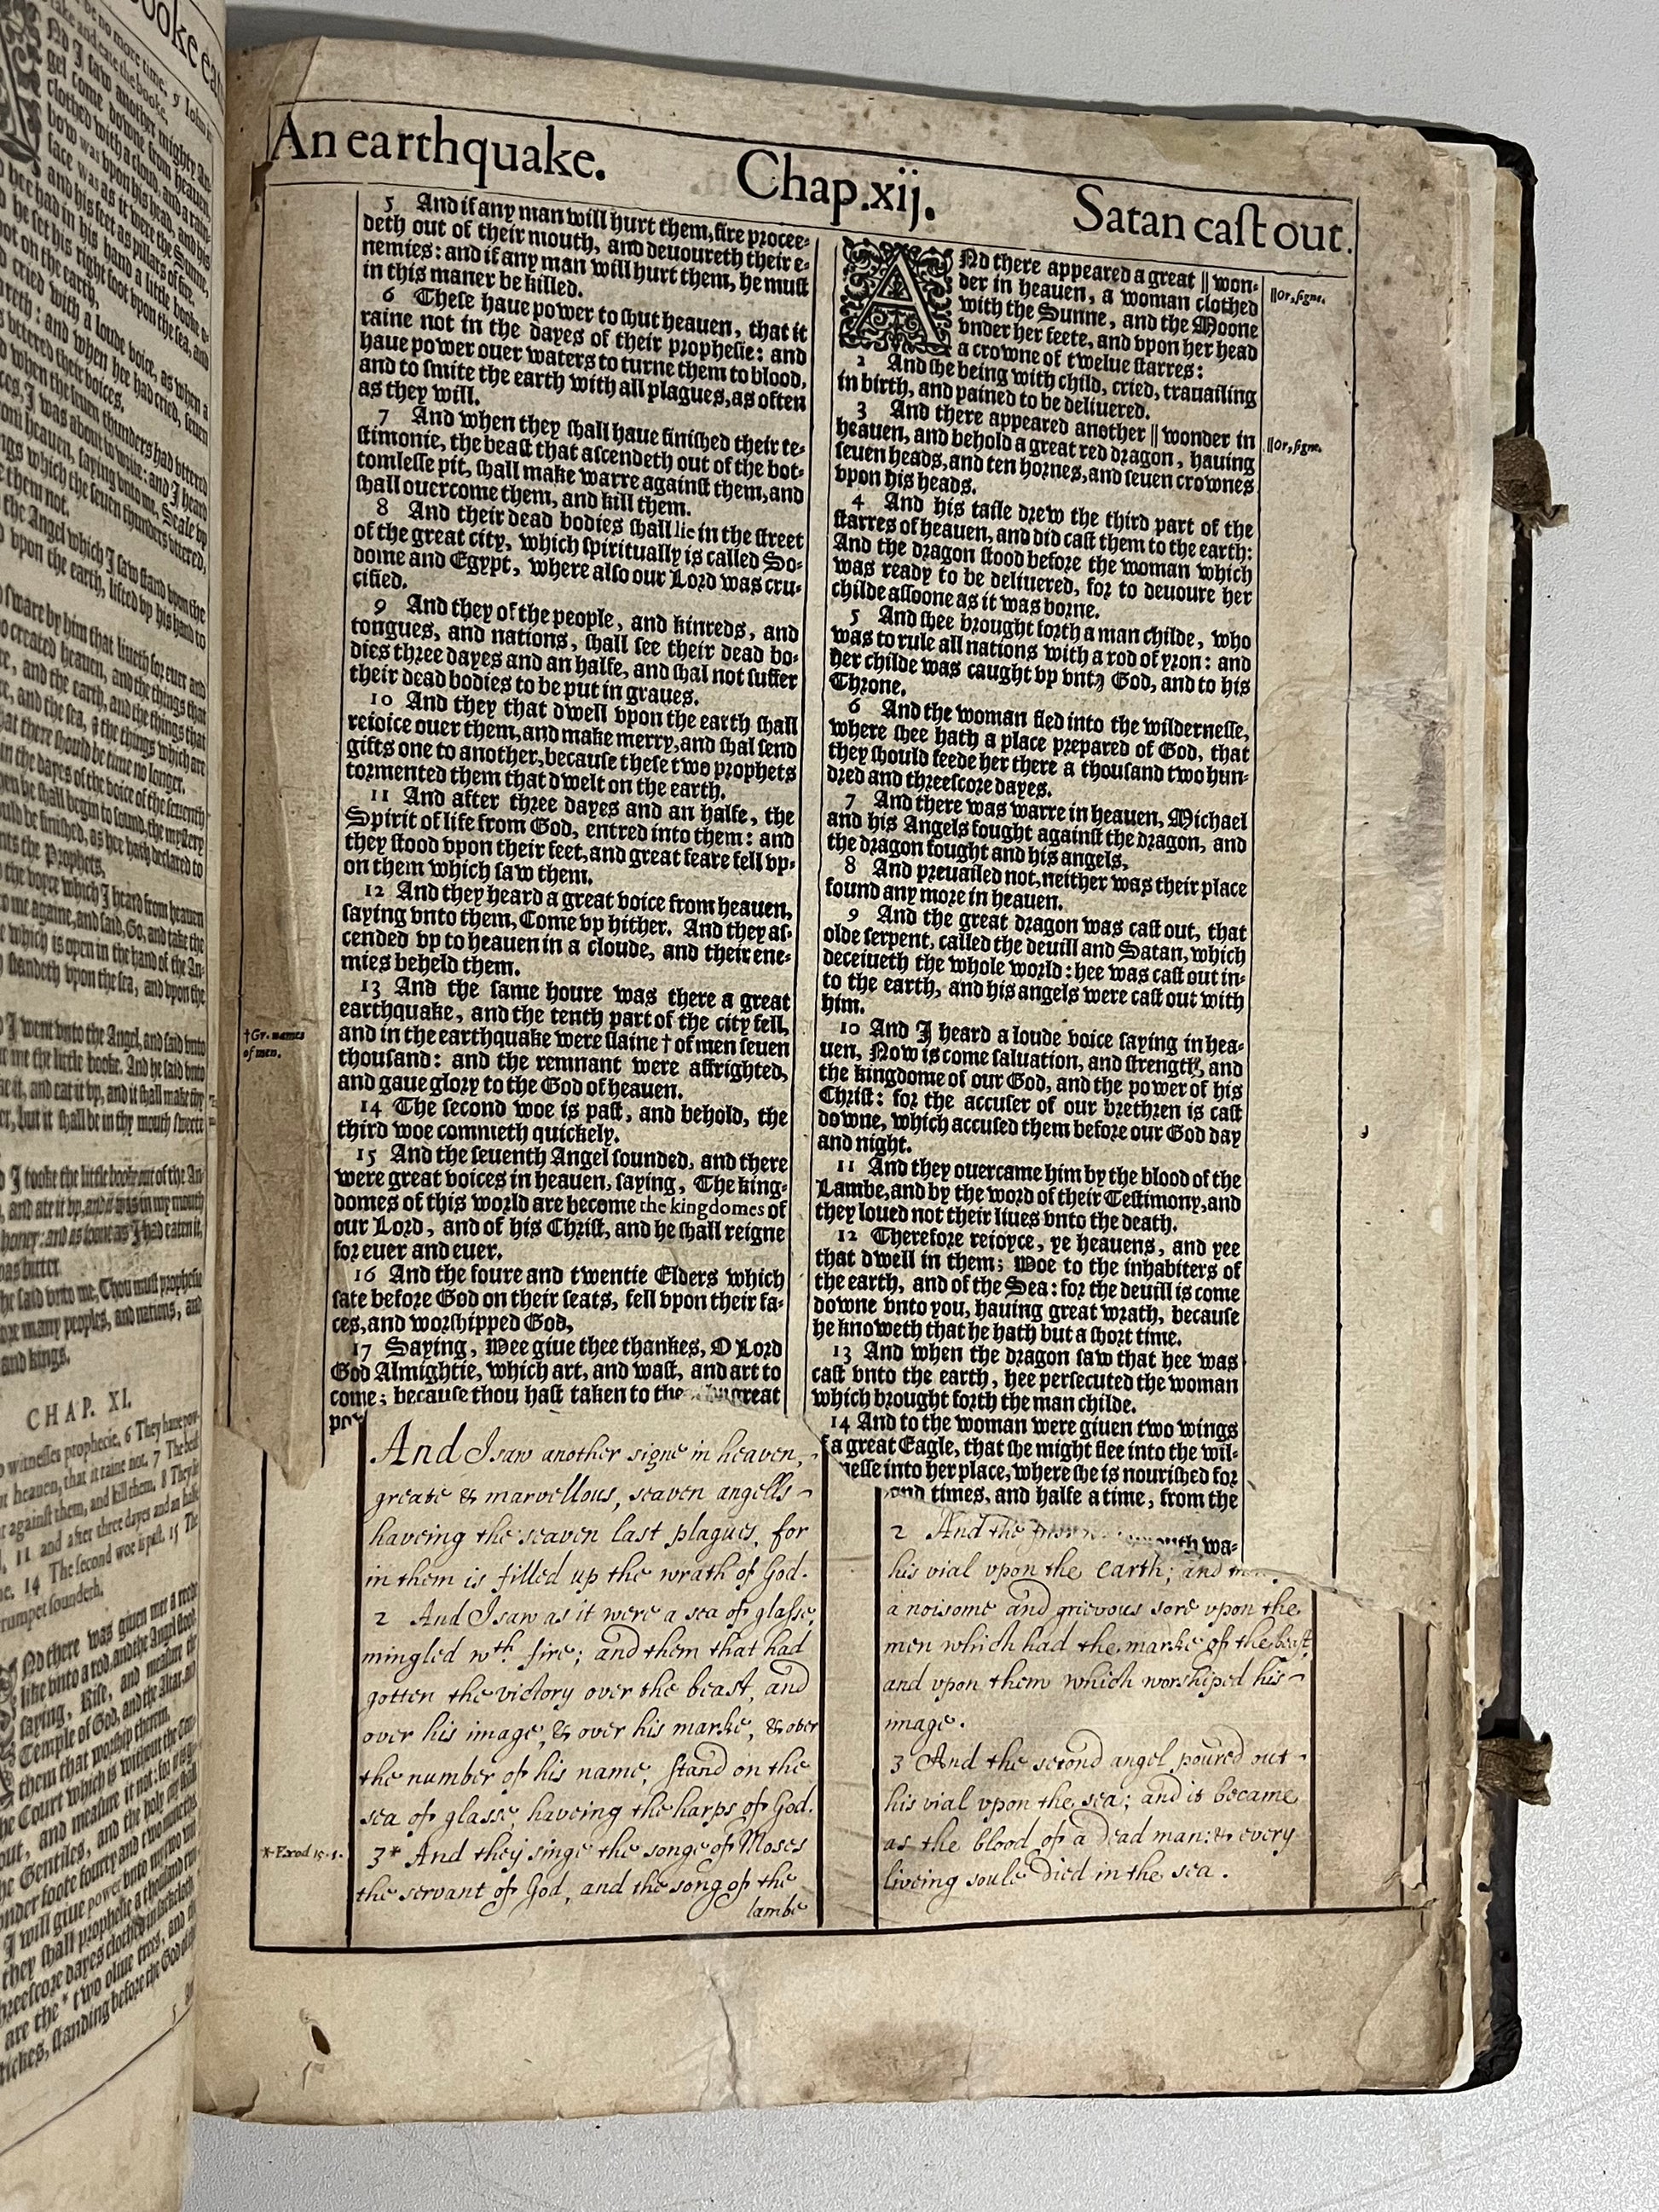 ooke eat
be no more time. 9 Iohn is
take and eate the booke.
Nd I saw another mighty An-
gel come downe from heauen,
clothed with a cloud, and a raine-
bow was vpon his head, and his
face was as it were the Sunne,
and his feet as pillars of fire.
hee had in his hand a little booke o-
he set his right foot vpon the sea, and
oot on the earth,
cried with a loude voice, as when a
reth: and when hee had cried, seuen
vttered their voices.
when the seuen thunders had vttered
ces, I was about to write: and I heard
from heauen, saying vnto me, Seale vp
ngs which the seuen thunders vttered,
them not.
the Angel which I saw stand vpon the
vpon the earth, lifted vp his hand to
sware by him that liueth for euer and
o created heauen, and the things that
re, and the earth, and the things that
re, and the sea, & the things which are
hat there should be time no longer.
in the dayes of the voice of the seuenth
en he shall begin to sound, the mystery
ould be finished, as hee hath declared to
nts the Prophets.
the voyce which I heard from heauen
o me againe, and said, Go, and take the
e which is open in the hand of the An-
standeth vpon the sea, and vpon the
I went vnto the Angel, and said vnto
me the little booke. And he said vnto
e it, and eat it vp, and it shall make thy
er, but it shall be in thy mouth sweete
I tooke the little booke out of the An-
and ate it vp, and it was in my mouth
honey: and as soone as I had eaten it,
was bitter.
he said vnto me, Thou must prophesie
ore many peoples, and nations, and
and kings.
CHAP. XI.
witnesses prophecie. 6 They haue pow-
heauen, that it raine not. 7 The beast
against them, and kill them. 8 They lie
11 and after three dayes and an halfe
14 The second woe is past. 15 The
trumpet soundeth.
Nd there was giuen me a reede
like vnto a rod, and the Angel stood,
saying, Rise, and measure the
Temple of God, and the Altar, and
them that worship therein.
he Court which is without the
out, and measure it not: for it is
he Gentiles, and the holy city shall
vnder foote fourty and two moneths
I will giue power vnto my two
they shall prophesie a thousand
hreescore dayes clothed in sackcloth
are the * two oliue trees, and
stickes, standing before the God of
An earthquake. Chap.xij. Satan cast out.
5 And if any man will hurt them, fire procee-
deth out of their mouth, and deuoureth their e-
nemies: and if any man will hurt them, he must
in this maner be killed.
6 These haue power to shut heauen, that it
raine not in the dayes of their prophesie: and
haue power ouer waters to turne them to blood,
and to smite the earth with all plagues, as often
as they will.
7 And when they shall haue finished their te-
stimonie, the beast that ascendeth out of the bot-
tomlesse pit, shall make warre against them, and
shall ouercome them, and kill them.
8 And their dead bodies shall lie in the street
of the great city, which spiritually is called So-
dome and Egypt, where also our Lord was cru-
cified.
9 And they of the people, and kinreds, and
tongues, and nations, shall see their dead bo-
dies three dayes and an halfe, and shal not suffer
their dead bodies to be put in graues.
10 And they that dwell vpon the earth shall
reioice ouer them, and make merry, and shal send
gifts one to another, because these two prophets
tormented them that dwelt on the earth.
11 And after three dayes and an halfe, the
Spirit of life from God, entred into them: and
they stood vpon their feet, and great feare fell vp-
on them which saw them.
12 And they heard a great voice from heauen,
saying vnto them, Come vp hither. And they as-
cended vp to heauen in a cloude, and their ene-
mies beheld them.
13 And the same houre was there a great
earthquake, and the tenth part of the city fell,
†Gr. names
of men.
and in the earthquake were slaine † of men seuen
thousand: and the remnant were affrighted,
and gaue glory to the God of heauen.
14 The second woe is past, and behold, the
third woe commeth quickely.
15 And the seuenth Angel sounded, and there
were great voices in heauen, saying, The king-
domes of this world are become the kingdomes of
our Lord, and of his Christ, and he shall reigne
for euer and euer.
16 And the foure and twentie Elders which
sate before God on their seats, fell vpon their fa-
ces, and worshipped God,
17 Saying, Wee giue thee thankes, O Lord
God Almightie, which art, and wast, and art to
come; because thou hast taken to the great
po
And I saw another signe in heaven,
greate & marvellous, seaven angells
haveing the seaven last plagues, for
in them is filled up the wrath of God.
2 And I saw as it were a sea of glasse,
mingled wth. fire; and them that had
gotten the victory over the beast, and
over his image, & over his marke, & over
the number of his name, stand on the
sea of glasse, haveing the harps of God.
*Exod 15.1.
3* And they singe the songe of Moses
the servant of God, and the song of the
lambe
ANd there appeared a great || won-
||Or, signe.
der in heauen, a woman clothed
with the Sunne, and the Moone
vnder her feete, and vpon her head
a crowne of twelue starres:
2 And she being with child, cried, trauailing
in birth, and pained to be deliuered.
3 And there appeared another || wonder in
||Or, signe.
heauen, and behold a great red dragon, hauing
seuen heads, and ten hornes, and seuen crownes
vpon his heads.
4 And his taile drew the third part of the
starres of heauen, and did cast them to the earth:
And the dragon stood before the woman which
was ready to be deliuered, for to deuoure her
childe assoone as it was borne.
5 And shee brought forth a man childe, who
was to rule all nations with a rod of yron: and
her childe was caught vp vnto God, and to his
Throne.
6 And the woman fled into the wildernesse,
where shee hath a place prepared of God, that
they should feede her there a thousand two hun-
dred and threescore dayes.
7 And there was warre in heauen, Michael
and his Angels fought against the dragon, and
the dragon fought and his angels,
8 And preuailed not, neither was their place
found any more in heauen.
9 And the great dragon was cast out, that
olde serpent, called the deuill and Satan, which
deceiueth the whole world: hee was cast out in-
to the earth, and his angels were cast out with
him.
10 And I heard a loude voice saying in hea-
uen, Now is come saluation, and strength, and
the kingdome of our God, and the power of his
Christ: for the accuser of our brethren is cast
downe, which accused them before our God day
and night.
11 And they ouercame him by the blood of the
Lambe, and by the word of their Testimony, and
they loued not their liues vnto the death.
12 Therefore reioyce, ye heauens, and yee
that dwell in them; Woe to the inhabiters of
the earth, and of the Sea: for the deuill is come
downe vnto you, hauing great wrath, because
he knoweth that he hath but a short time.
13 And when the dragon saw that hee was
cast vnto the earth, hee persecuted the woman
which brought forth the man childe.
14 And to the woman were giuen two wings
f a great Eagle, that she might flee into the wil-
nesse into her place, where she is nourished for
and times, and halfe a time, from the
outh wa-
2 And the
his vial upon the earth; and
a noisome and grievous sore upon the
men which had the marke of the beast,
and upon them which worshiped his
image.
3 And the second angel poured out
his vial upon the sea; and it became
as the blood of a dead man: & every
liveing soule died in the sea.